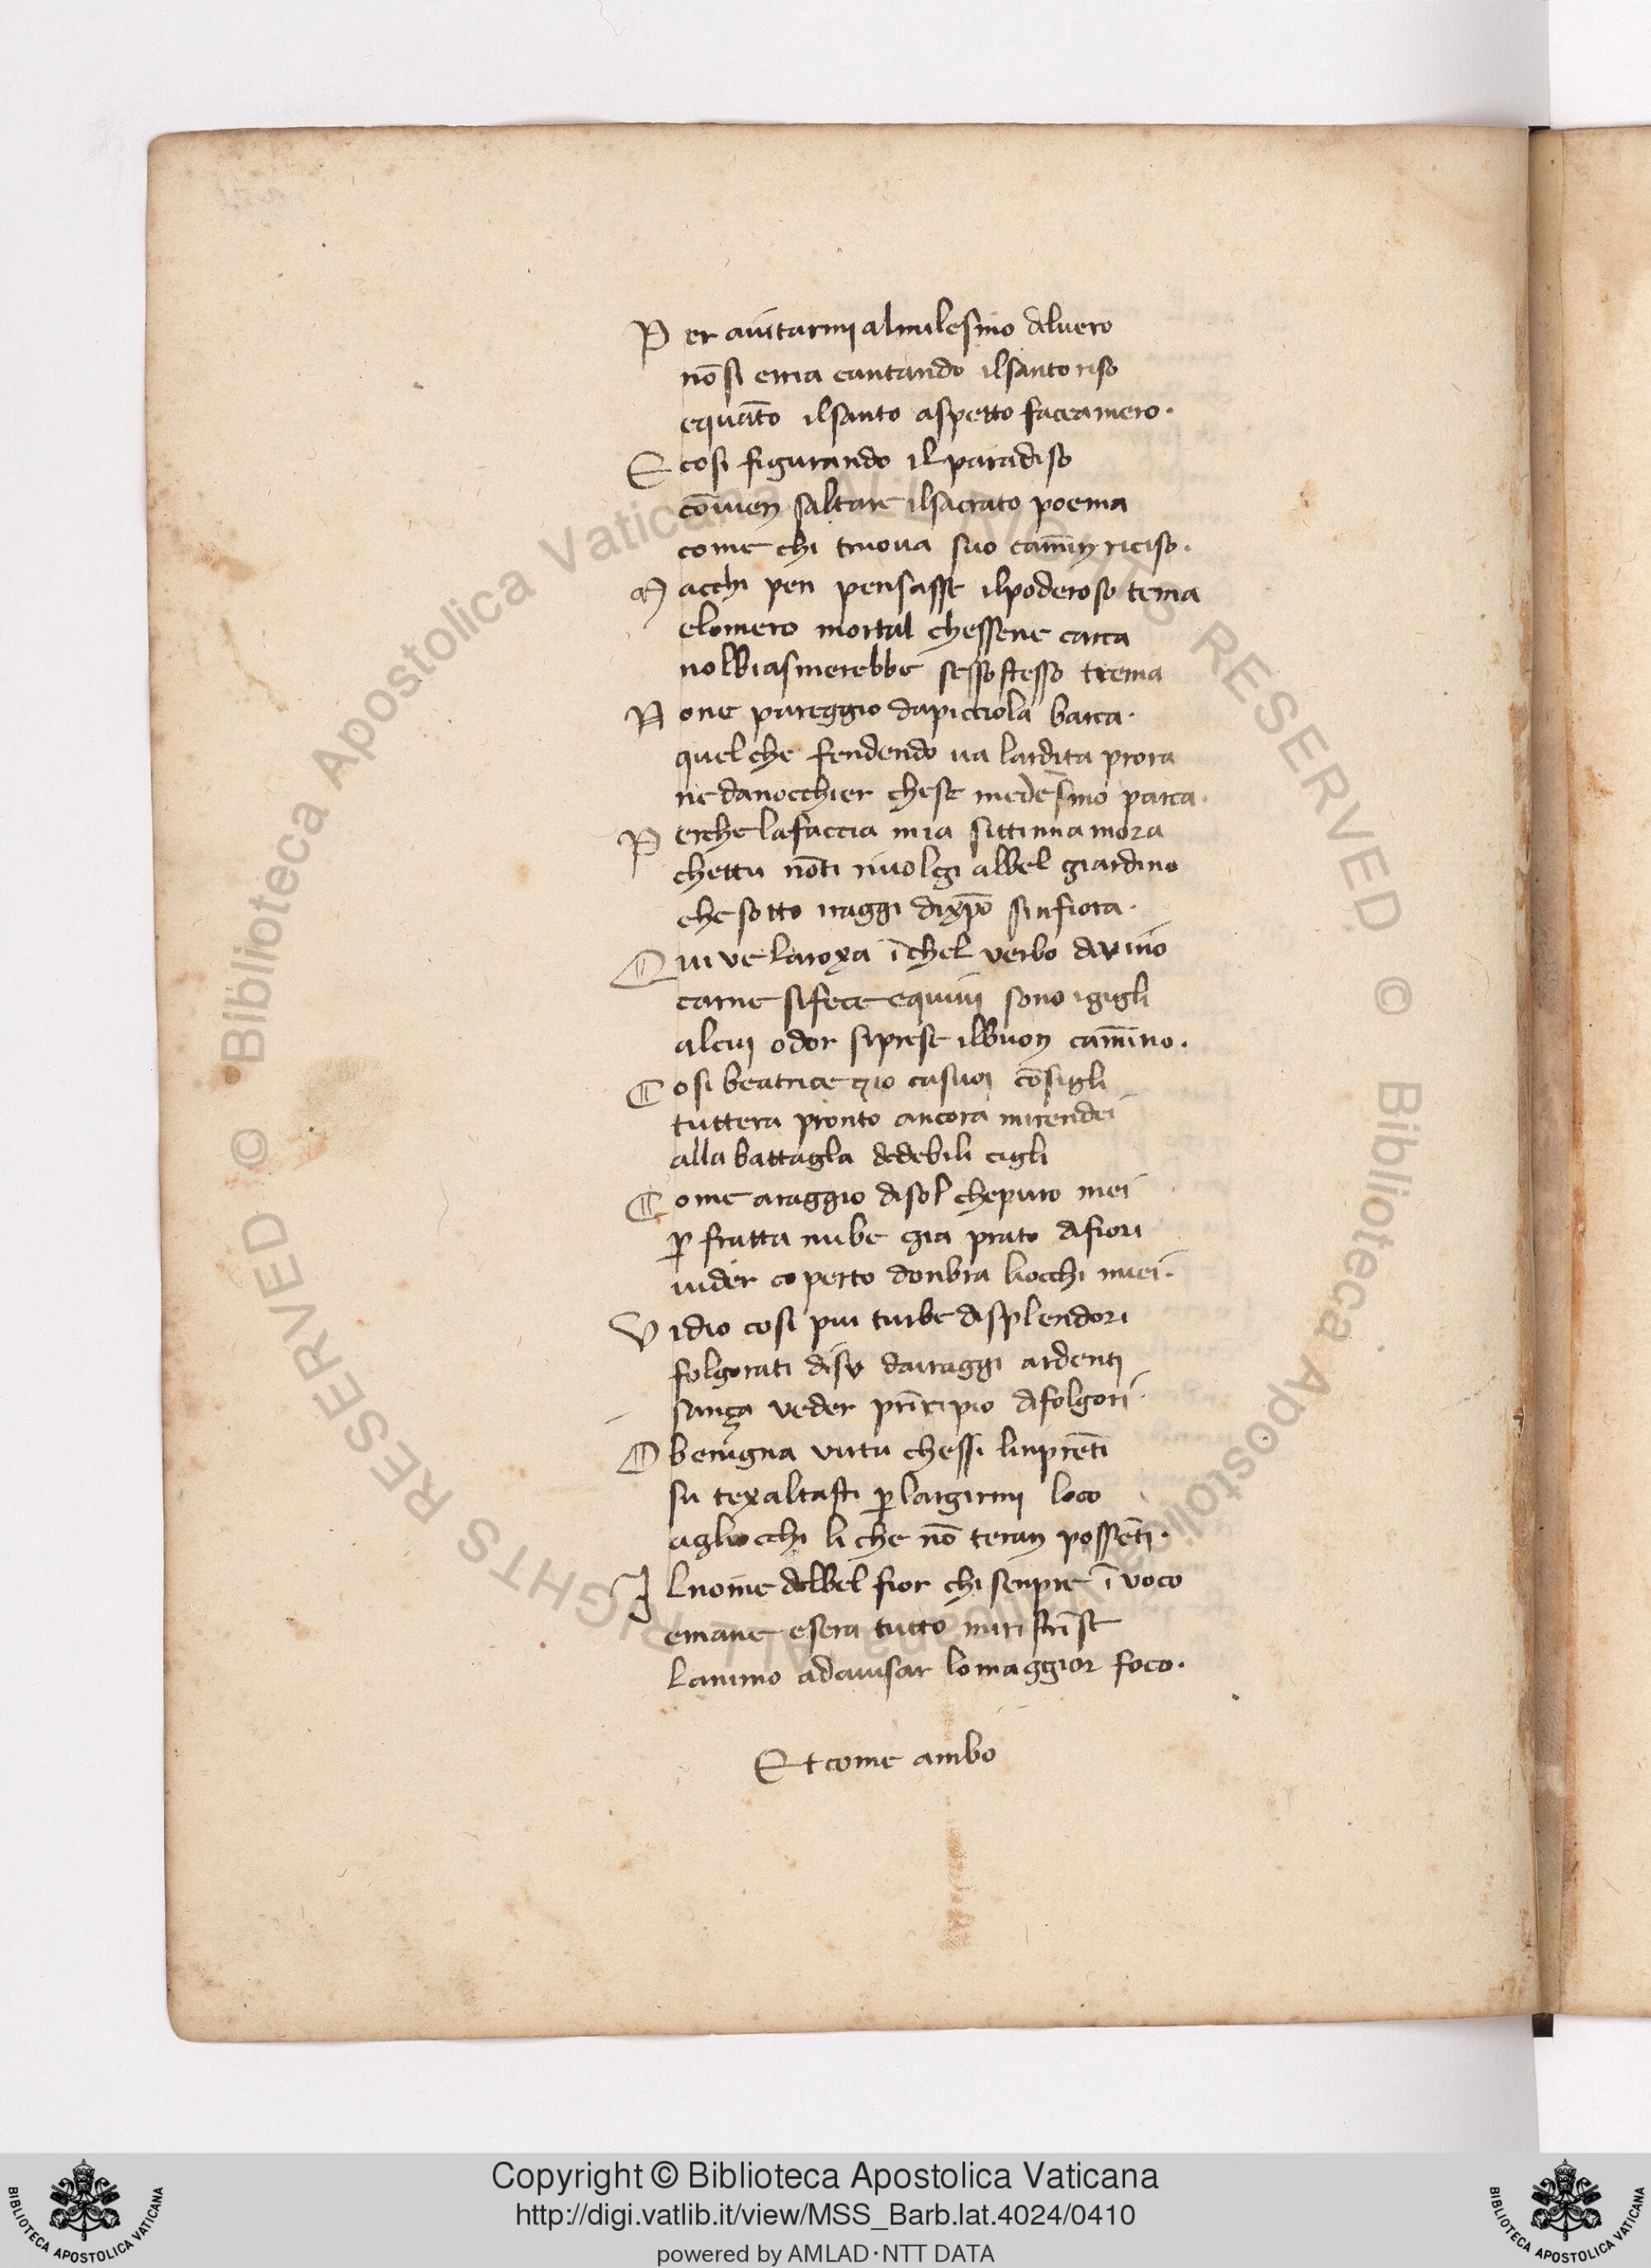 Per aiutarmi almilesmo deluero
nō si erria cantando ilsanto riso
equāto ilsanto aspetto faceamero.
E cosi figurando il paradiso
cōuien saltare ilsacrato poema
come chi truoua suo camīn riciso.
Macchi pen pensasse ilpoderoso tema
elomero mortal chessene carca
nolbiasmerebbe sessostesso trema
None pareggio dapicciola barca.
quel che fendendo ua lardita prora
nedanocchier chese medesmo parca.
Perche lafaccia mia sittinnamora
chettu nōti riuolgi albel giardino
che sotto iraggi dixpo sinfiora.
Qui ve laroxa ī chel verbo divino
carne sifece equiui sono igigli
alcui odor siprese ilbuon camīno.
Cosi beatrice 7io casuoi cōsigli
tuttera pronto ancora mirendei
alla battagla dedebili cigli
Come araggio disol chepuro mei
ꝑ fratta nube gia prato difiori
uider coperto donbra liocchi miei.
Vidio cosi piu turbe displendori
folgorati disu dairaggi ardenti
sança veder prīcipio difolgori.
O benigna virtu chessi linprēti
su texaltasti ꝑ largirmi loco
agliocchi li che nō teran possēti.
Ilnome delbel fior chi senpre ī voco
emane esera tutto miristrīse
lanimo adauisar lomaggior foco.
Et come ambo
© Biblioteca Apostolica Vaticana ALL RIGHTS RESERVED © Biblioteca Apostolica Vaticana ALL RIGHTS RESERVED
Copyright © Biblioteca Apostolica Vaticana
http://digi.vatlib.it/view/MSS_Barb.lat.4024/0410
powered by AMLAD·NTT DATA
BIBLIOTECA APOSTOLICA VATICANA
BIBLIOTECA APOSTOLICA VATICANA